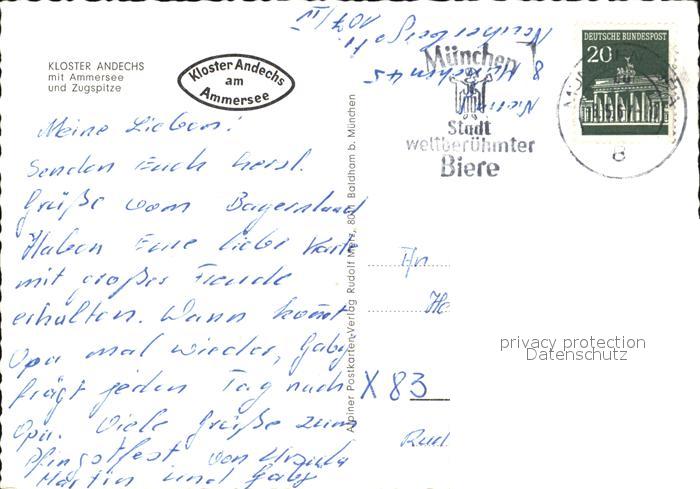 KLOSTER ANDECHS
mit Ammersee
und Zugspitze
Kloster Andechs
am
Ammersee
Meine Lieben!
Senden Euch herzl.
Grüße vom Bayernland
Haben Eure liebe Karte
mit großer Freude
erhalten. Wann kommt
Opa mal wieder, Gaby
frägt jeden Tag nach
Opa. Viele Grüße zum
Pfingstfest von Ursula
Martin und Gaby
Alpiner Postkarten-Verlag Rudolf Merz, 8011 Baldham b. München
8 München 45
München
Stadt
weltberühmter
Biere
DEUTSCHE BUNDESPOST
20
8
An
X 83
privacy protection
Datenschutz